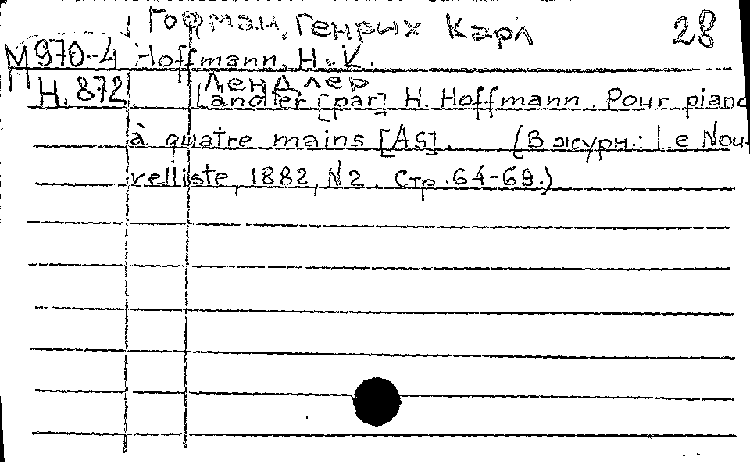 Гофман, Генрих Карл 28
М 970-4 Hoffmann, H. K.
Лендлер
Н. 872 Landler [par] H. Hoffmann. Pour piano
à quatre mains [As]. (В журн.: Le Nou-
velliste, 1882, N2. Стр. 64-69.)